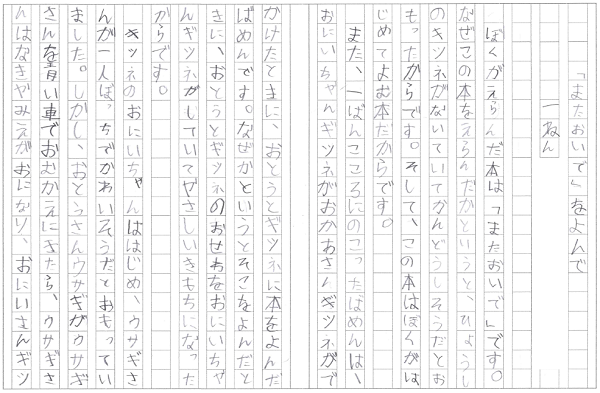 「またおいで」をよんで
一ねん
ぼくがえらんだ本は「またおいで」です。
なぜこの本をえらんだかというと、ひょうし
のキツネがないていてかんどうしそうだとお
もったからです。そして、この本はぼくがは
じめてよむ本だからです。
また、一ばんこころにのこったばめんは、
おにいちゃんギツネがおかあさんギツネがで
かけたときに、おとうとギツネに本をよんだ
ばめんです。なぜかというとそこをよんだと
きに、おとうとギツネのおせわをおにいちゃ
んギツネがしていてやさしいきもちになった
からです。
キツネのおにいちゃんははじめ、ウサギさ
んが一人ぼっちでかわいそうだとおもってい
ました。しかし、おとうさんウサギがウサギ
さんを青い車でおむかえにきたら、ウサギさ
んはなきやみえがおになり、おにいさんギツ